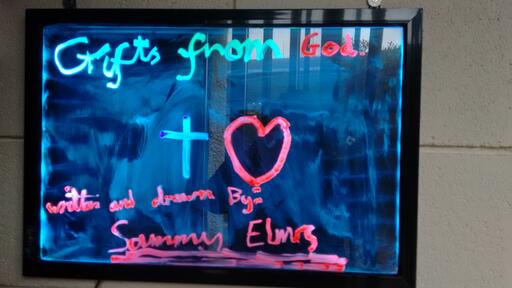 Gifts from God.
written and drawn By:
Sammy Elms